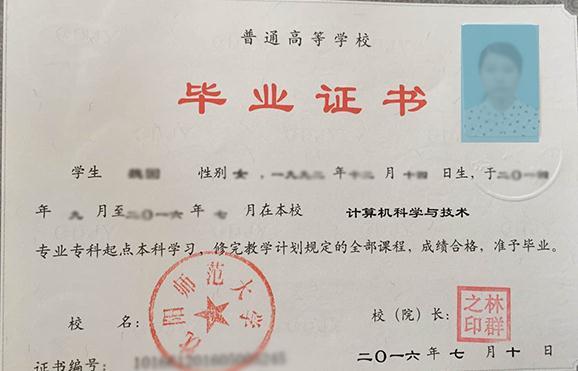 普通高等学校
毕业证书
学生 性别 女，一九九二年十二月十四日生，于二〇一四
年九月至二〇一六年七月在本校 计算机科学与技术
专业专科起点本科学习，修完教学计划规定的全部课程，成绩合格，准予毕业。
沈阳师范大学
校 名： 校（院）长： 林群之印
证书编号： 二〇一六年七月十日